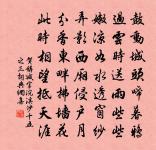 鼓動城頭啼暮鴉
過雲時送雨些些
嫩涼如水透窗紗
弄影西廂侵戶月
分香東畔拂牆花
此時相望抵天涯
賀鑄減字浣溪沙十五
之三